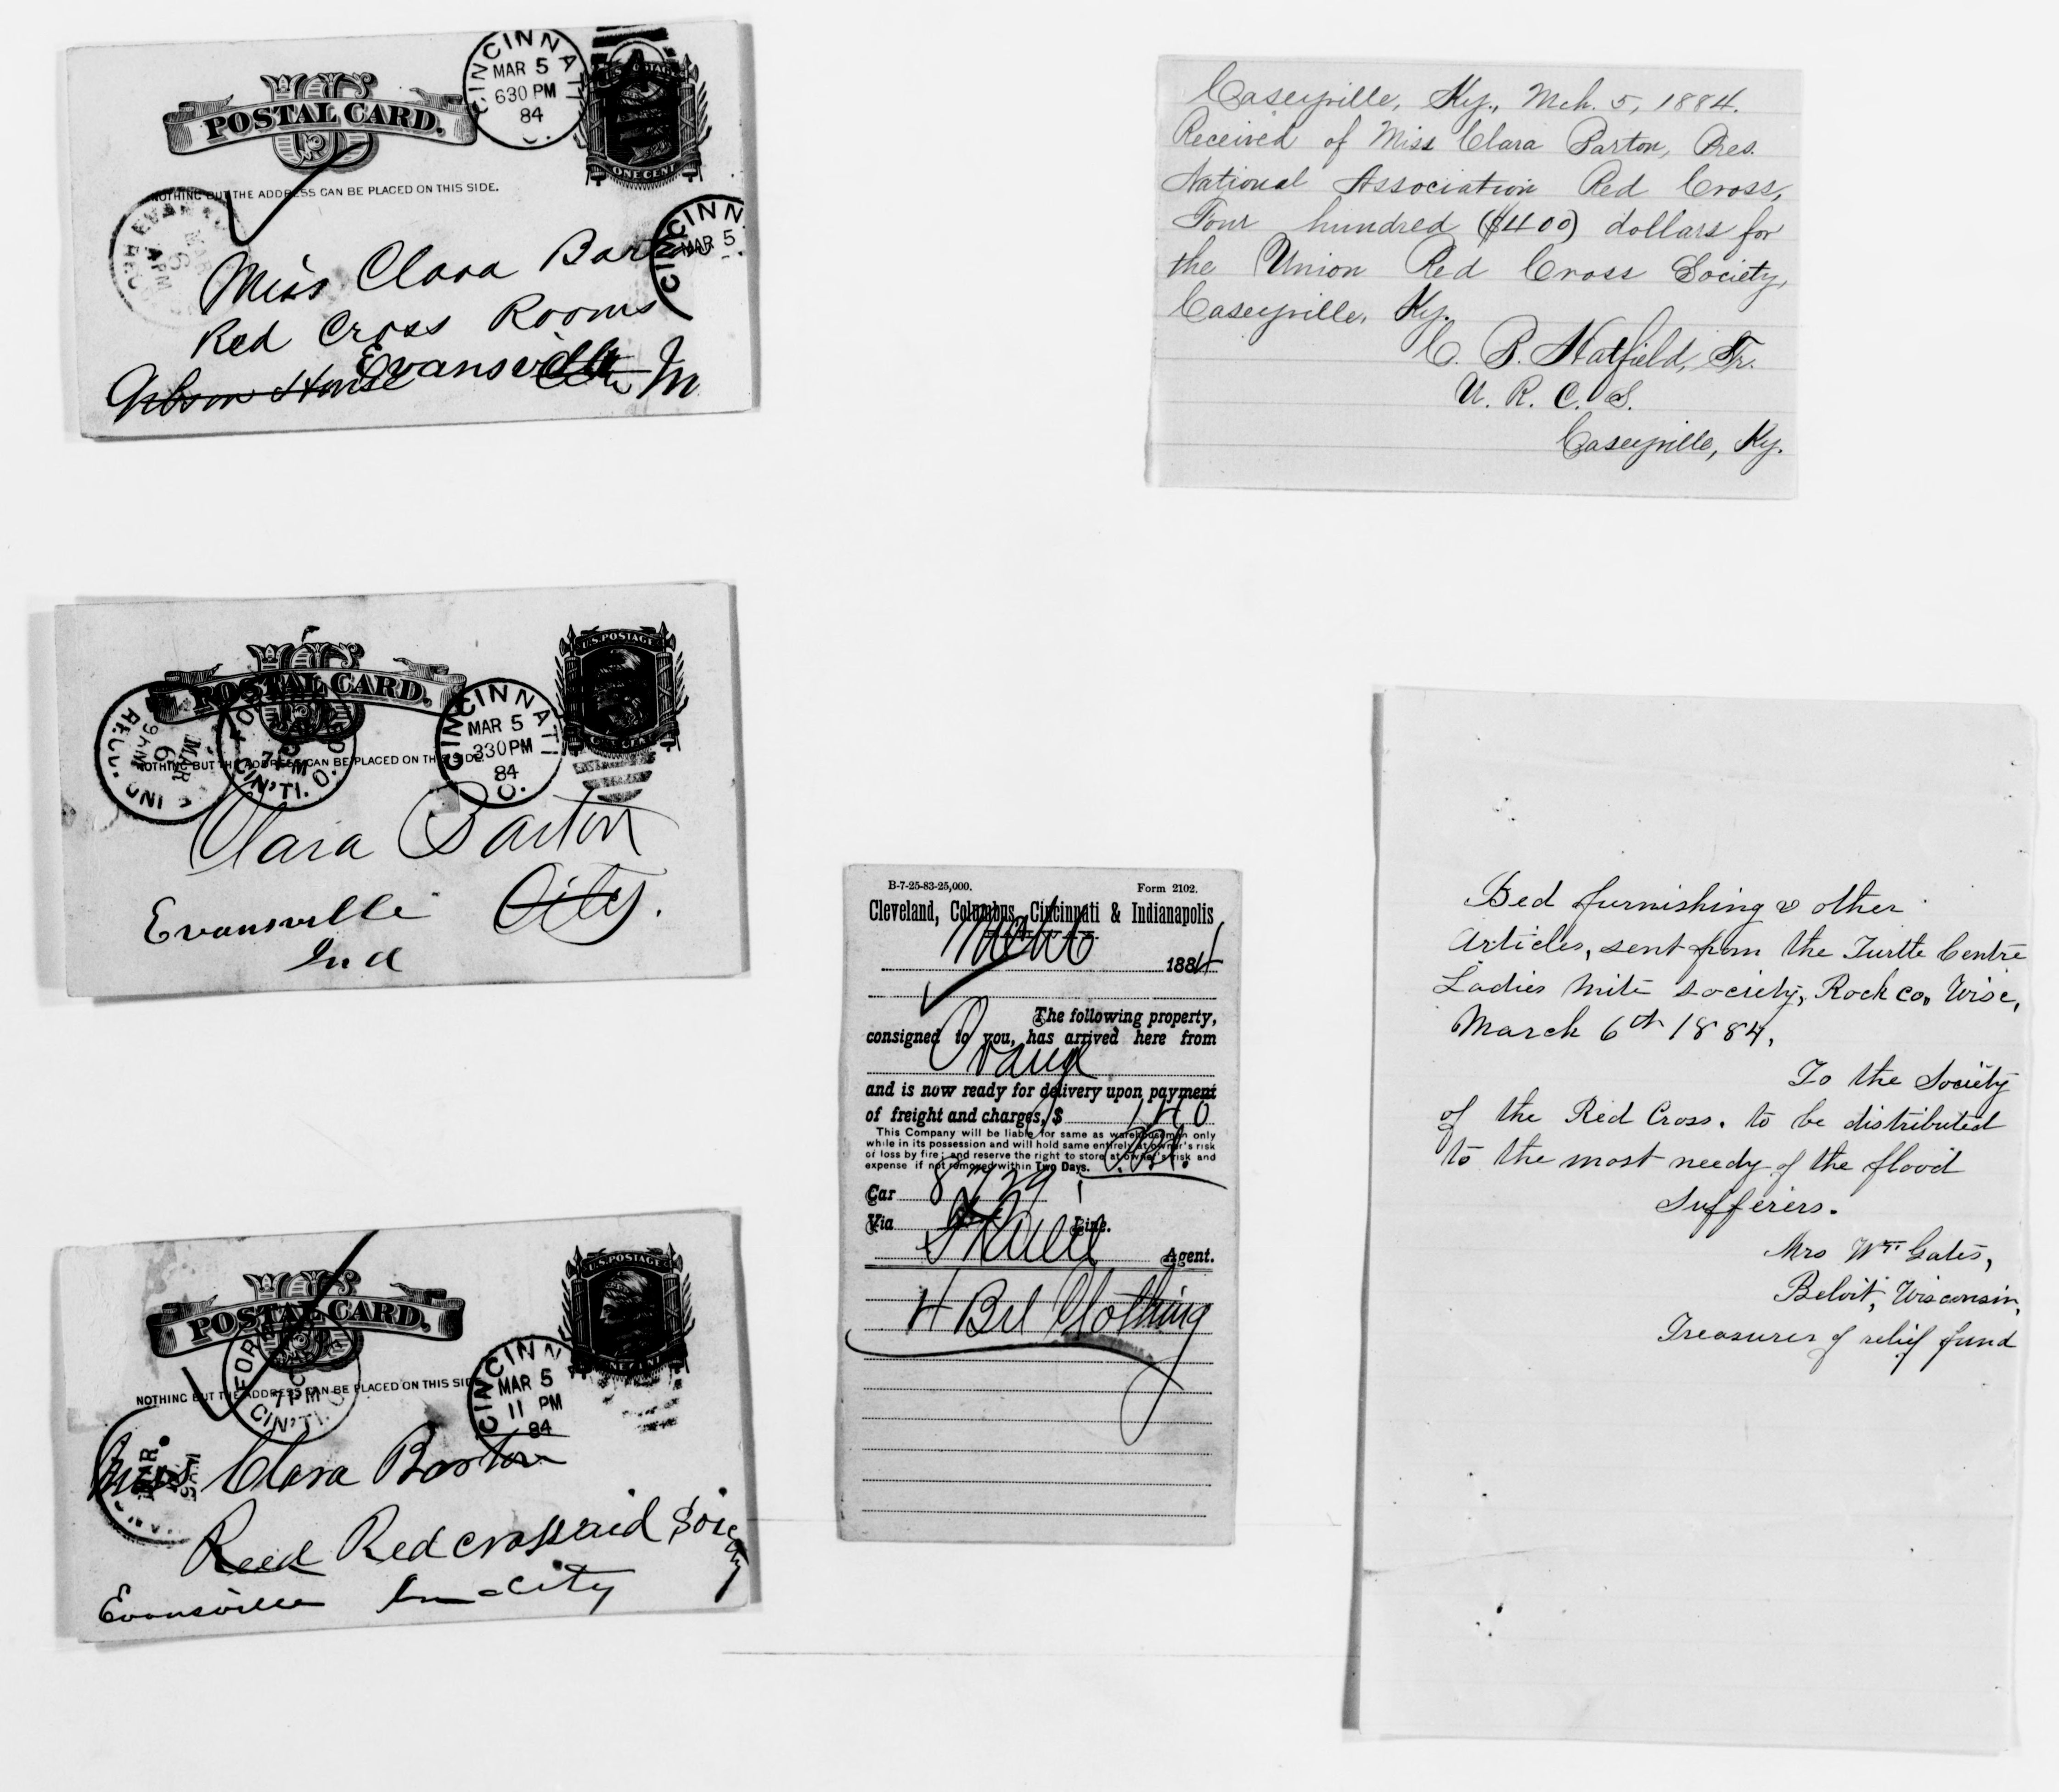 POSTAL CARD.
NOTHING BUT THE ADDRESS CAN BE PLACED ON THIS SIDE.
CINCINNATI
MAR 5
630 PM
84
O.
ONE CENT
CINN
MAR 5
Miss Clara Bart
Red Cross Rooms
Evansville
Gibson House
POSTAL CARD.
NOTHING BUT THE ADDRESS CAN BE PLACED ON THIS SIDE.
U.S. POSTAGE
CINCINNATI
MAR 5
330 PM
84
O.
REC'D.
MAR
6
IND
7 PM
CIN'TI. O.
Clara Barton
City.
Evansville
Ind
POSTAL CARD.
NOTHING BUT THE ADDRESS CAN BE PLACED ON THIS SIDE
U.S. POSTAGE
ONE CENT
CINCINN
MAR 5
11 PM
84
7 PM
CIN'TI. O.
MAR.
Miss Clara Barton
Red cross aid
Evansville
City
B-7-25-83-25,000.
Form 2102.
Cleveland, Columbus, Cincinnati & Indianapolis
1884
The following property,
consigned to you, has arrived here from
Orange
and is now ready for delivery upon payment
of freight and charges, $ 140
This Company will be liable for same as warehouseman only
while in its possession and will hold same entirely at owner's risk
of loss by fire; and reserve the right to store at owner's risk and
expense if not removed within Two Days.
Car
Via
Line.
Agent.
4 Bxl Clothing
Caseyville, Ky., Mch. 5, 1884.
Received of Miss Clara Barton, Pres.
National Association Red Cross,
Four hundred ($400) dollars for
the Union Red Cross Society,
Caseyville, Ky.
C. B. Hatfield, Tr.
U. R. C. S.
Caseyville, Ky.
Bed furnishing & other
Articles, sent from the Turtle Centre
Ladies Mite Society, Rock co, Wisc,
March 6th 1884,
To the Society
of the Red Cross. to be distributed
to the most needy of the flood
Sufferers.
Mrs Wm Gates,
Beloit, Wisconsin,
Treasurer of relief fund